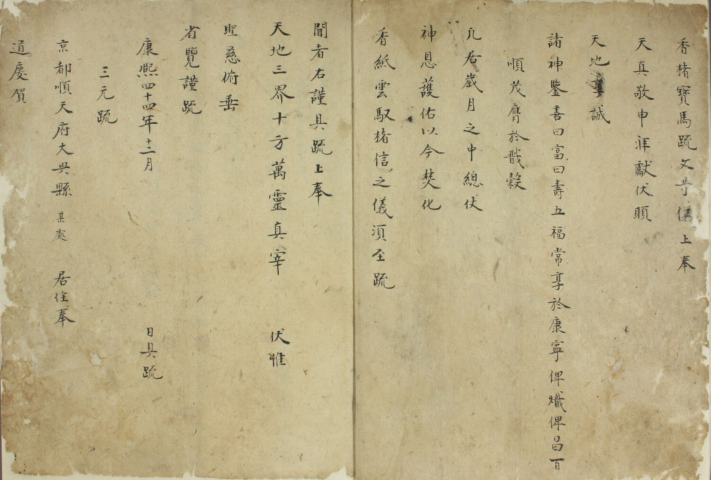 香楮寶馬疏文等儀上奉
天真敬申洋獻伏願
天地 誠
諸神鑒喜曰富曰壽五福常享於康寧俾熾俾昌百
順茂膺於戩穀
凡居歲月之中總伏
神恩護佑以今焚化
香紙雲馭楮信之儀須至疏
聞者右謹具疏上奉
天地三界十方萬靈真宰 伏惟
聖慈俯垂
省覽謹疏
康熙四十四年十二月 日具疏
三元疏
京都順天府大興縣 某處 居住奉
道慶賀